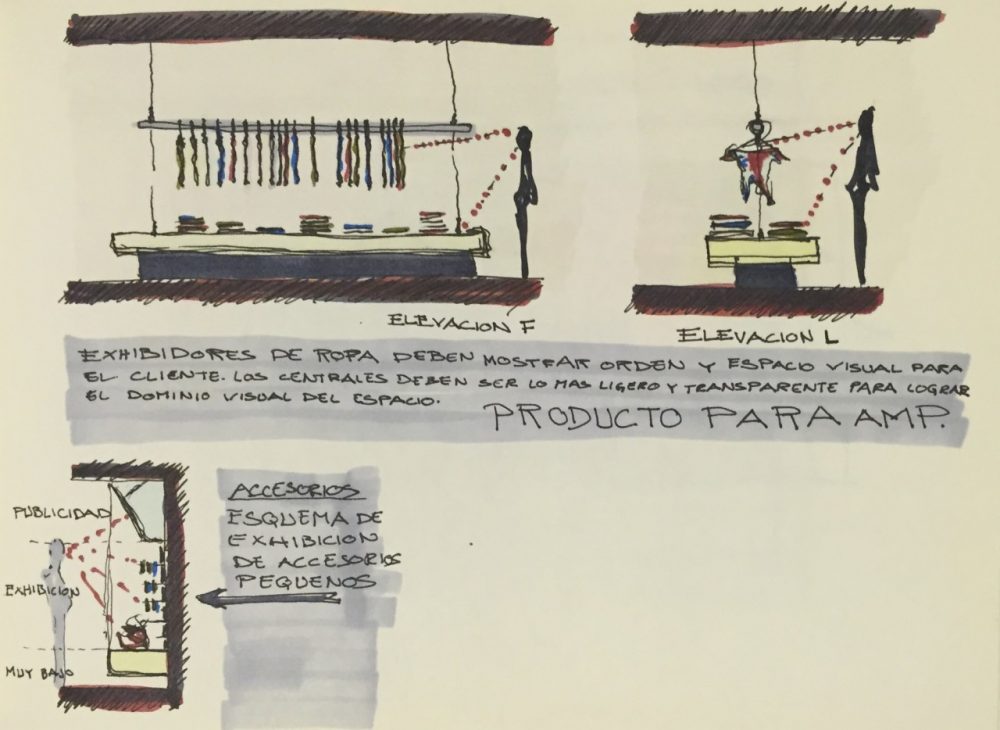 ELEVACION F
ELEVACION L
EXHIBIDORES DE ROPA DEBEN MOSTRAR ORDEN Y ESPACIO VISUAL PARA
EL CLIENTE. LOS CENTRALES DEBEN SER LO MAS LIGERO Y TRANSPARENTE PARA LOGRAR
EL DOMINIO VISUAL DEL ESPACIO.
PRODUCTO PARA AMP.
PUBLICIDAD
EXHIBICION
MUY BAJO
ACCESORIOS
ESQUEMA DE
EXHIBICION
DE ACCESORIOS
PEQUENOS